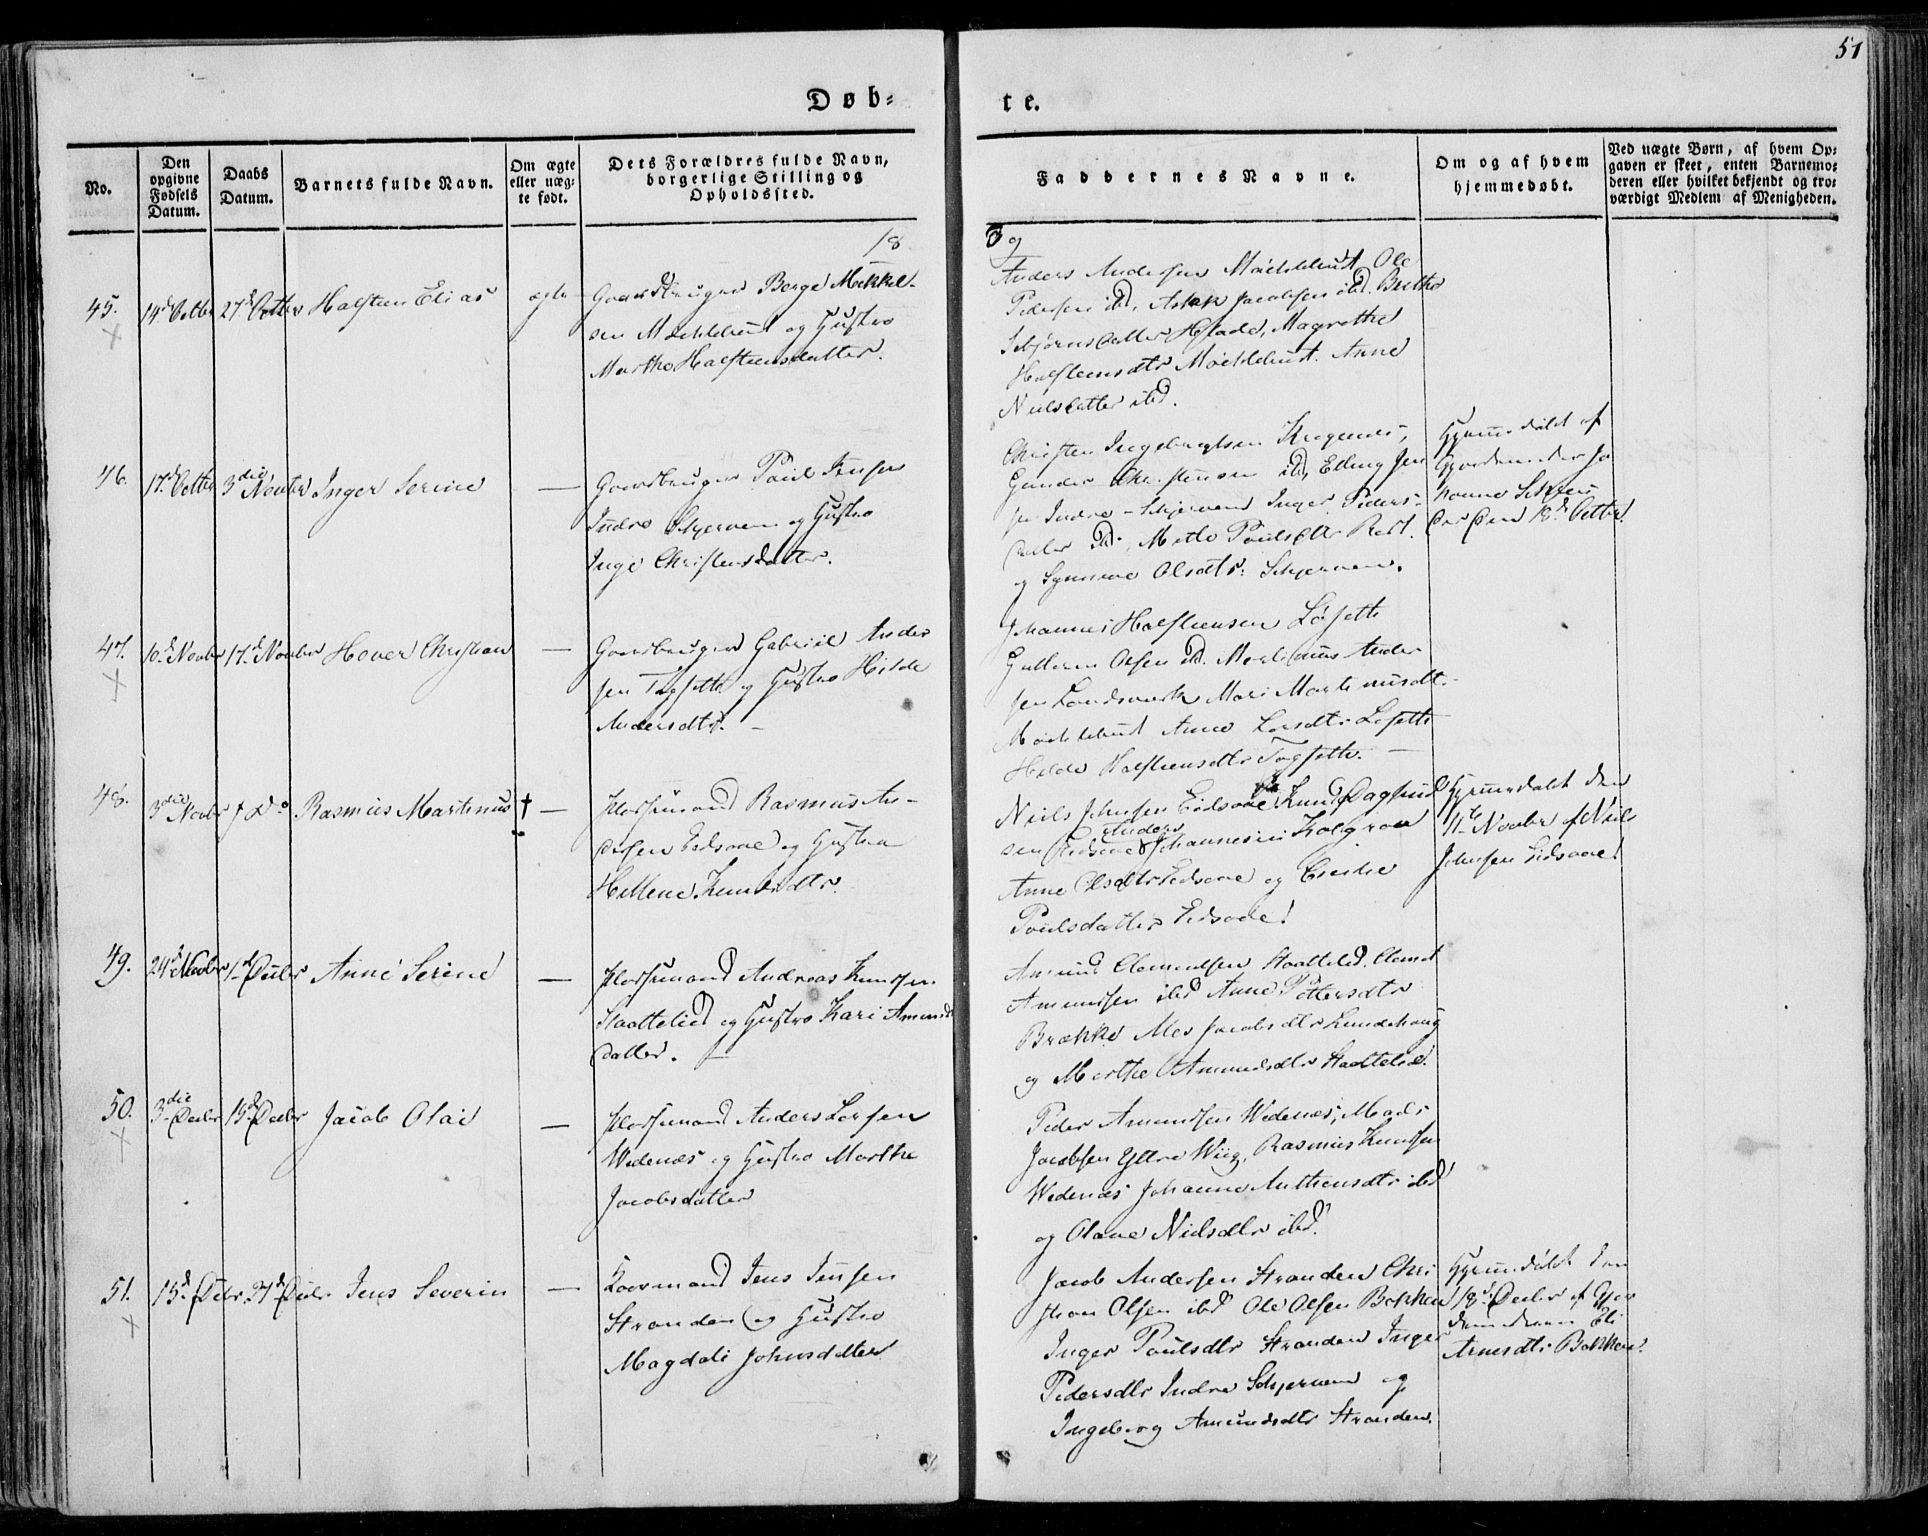 51
Døb=
te.
No.
Den opgivne Fødsels Datum.
Daabs Datum.
Barnets fulde Navn.
Om ægte eller uægte født.
Dets Forældres fulde Navn, borgerlige Stilling og Opholdssted.
Faddernes Navne.
Om og af hvem hjemmedøbt.
Ved uægte Børn, af hvem Opgaven er skeet, enten Barnemoderen eller hvilket bekjendt og troværdigt Medlem af Menigheden.
18
39
45. 14d Octbr 27d Octbr Halsteen Elias ægte
Gaardbruger Børge Mekkel-
sen og Hustro
Marthe Halsteensdatter.
Anders Andersen Ole
Pedersen ibd, Askk Jacobsen ibd. Berthe
datter, Magrethe
Halsteensdtr Anne
Nielsdatter ibd.
46. 17d Octbr 3die Novbr Inger Serine —
Gaardbruger Poul Jensen
Indre Schjerven og Hustro
Inge Christensdatter.
Christen Ingebregtsen
Gunder Christensen ibd, Elling Jen
sen Indre-Schjerven Inger Peders-
datter ibd. Mette Poulsdtr
og Synneve Olsdtr: Schjerven.
Hjemmedøbt af
Gjordemoder Jo
hanne
den 18d Octbr.
47. 10d Novbr 17d Novbr Hover Christian —
Gaardbruger Gabriel Ander
sen Tagsette og Hustro Hilde
Andersdtr. —
Johannes Halsteensen Løsette
Guttorm Olsen ibd. Martinus Ander
sen Landsverk Mari Martinusdt.
Anne Larsdtr Løsette
Hilde Halsteensdtr Tagsette. —
48. 3die Novbr f Do Rasmus Martinus † —
Plassmand Rasmus An-
dersen Eidsaae og Hustru
Hellene Knudsdtr.
Niels Johnsen Eidsaae Knud Dagfind
sen Eidsaae Anders Johannesen
Anne Olsdtr Eidsaae og
Poulsdatter Eidsaae!
Hjemmedøbt den
11te Novbr af Niels
Johnsen Eidsaae!
49. 24d Novbr 1d Decbr Anne Serine —
Plassmand Andreas Knudsen
Staattelied og Hustro Kari Amunds
datter. —
Amund Clemetsen Staattelied, Clemet
Amundsen ibd Anne Pettersdtr
Brække Jacobsdtr Lundehoug
og Marthe Amundsdtr Staattelied.
50. 3die Decbr 15d Decbr Jacob Olai —
Plassmand Anders Larsen
Wedenæs og Hustro Marthe
Jacobsdatter
Peder Amundsen Wedenæs, Mads
Jacobsen Yttre Wiig, Rasmus Knudsen
Wedenæs Johanne Anthensdtr ibd
og Olave Nielsdtr ibd.
51. 15d Decbr. 31d Decbr Jens Severin —
Kaarmand Jens Jensen
Stranden og Hustro
Magdali Johnsdatter
Jacob Andersen Stranden Chri
stian Olsen ibd Ole Olsen Bakken
Inger Poulsdtr Stranden Inger
Pedersdtr Indre Schjerven og
Ingeborg Amundsdtr Stranden.
Hjemmedøbt den
18d Decbr af Gjor
demoderen Eli
Arnesdtr Bakken.